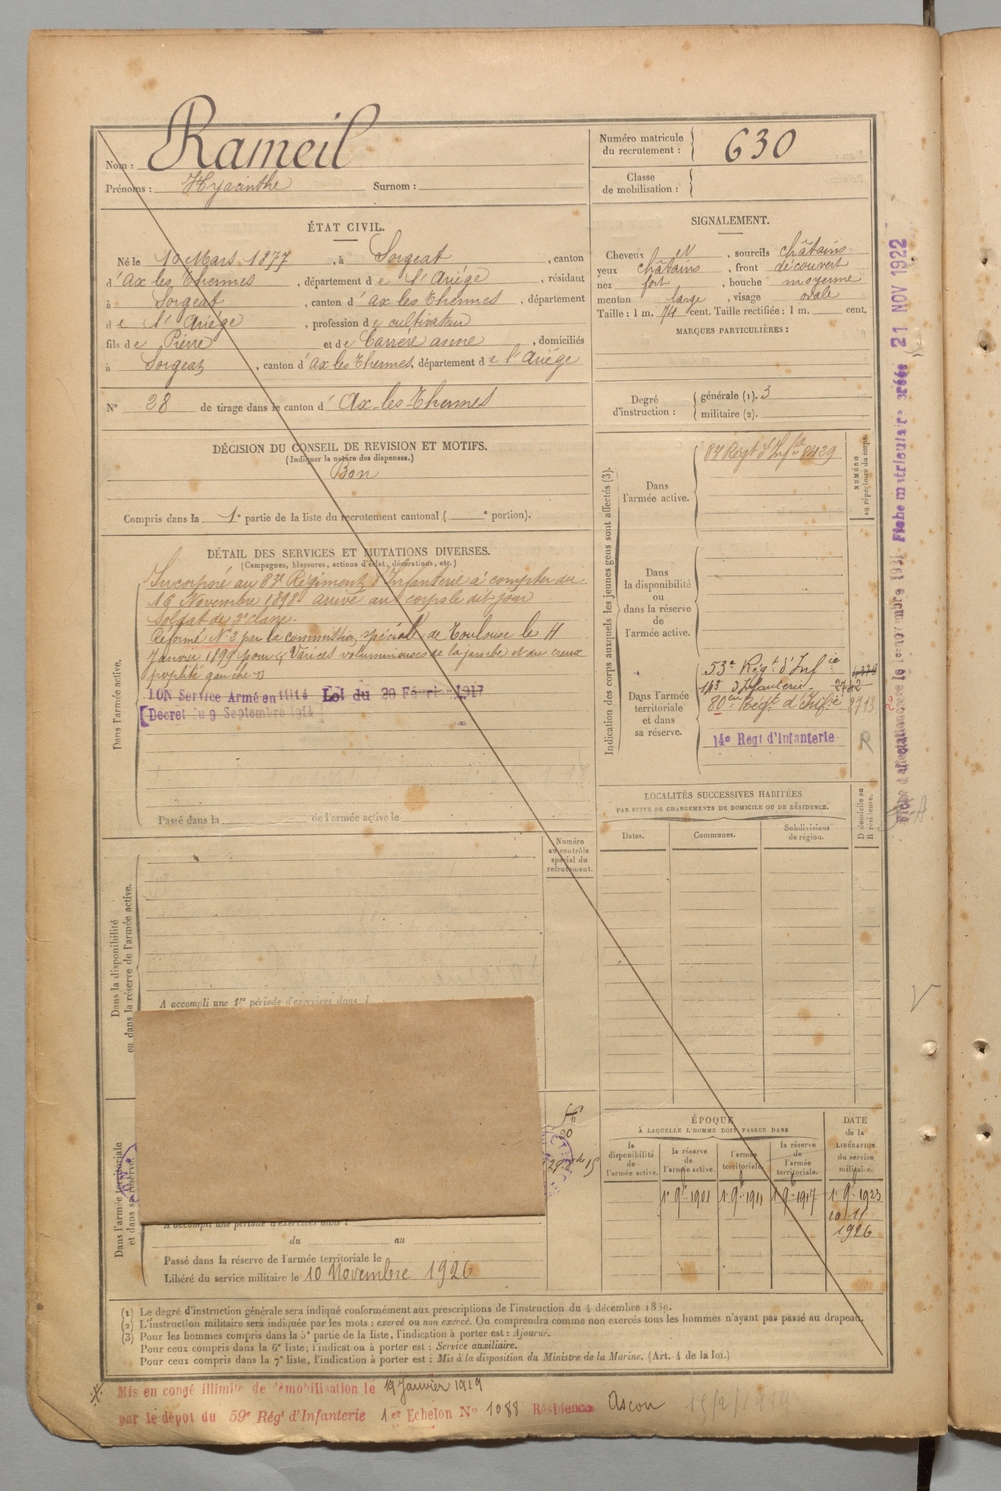 Nom : Rameil
Prénoms : Hyacinthe Surnom :
Numéro matricule du recrutement : 630
Classe de mobilisation :
ÉTAT CIVIL.
Né le 10 Mars 1877, à Sorgeat, canton
d'Ax les Thermes, département de l'Ariége, résidant
à Sorgeat, canton d'ax les thermes, département
de l'Ariége, profession de cultivateur
fils de Pierre et de Carrère anne, domiciliés
à Sorgeat, canton d'ax les Thermes, département de l'Ariége
N° 28 de tirage dans le canton d'Ax-les-Thermes
SIGNALEMENT.
Cheveux et, sourcils châtains
yeux châtains, front découvert
nez fort, bouche moyenne
menton large, visage ovale
Taille : 1 m. 74 cent. Taille rectifiée : 1 m. cent.
MARQUES PARTICULIÈRES :
Degré d'instruction : générale (1). 3
militaire (2).
DÉCISION DU CONSEIL DE REVISION ET MOTIFS.
(Indiquer la nature des dispenses.)
Bon
Compris dans la 1e partie de la liste du recrutement cantonal ( e portion).
DÉTAIL DES SERVICES ET MUTATIONS DIVERSES.
(Campagnes, blessures, actions d'éclat, décorations, etc.)
Dans l'armée active.
Incorporé au 87e Régiment d'Infanterie à compter du
16 Novembre 1898 arrivé au corps le dit jour
soldat de 2e classe.
Réformé N° 2 par la commission spéciale de Toulouse le 11
Janvier 1899 pour Varices volumineuses de la jambe et du creux
poplité gauche
BON Service Armé en 1914 Loi du 20 Février 1917
Décret du 9 Septembre 1914
Passé dans la de l'armée active le
Indication des corps auxquels les jeunes gens sont affectés (3).
NUMÉRO au répertoire du corps.
Dans l'armée active.
87 Régt d'Infie 8429
Dans la disponibilité ou dans la réserve de l'armée active.
Dans l'armée territoriale et dans sa réserve.
53e Régt d'Infie
143 d'Infanterie
80e Régt d'Infie 2713
14e Régt d'Infanterie R
LOCALITÉS SUCCESSIVES HABITÉES
PAR SUITE DE CHANGEMENTS DE DOMICILE OU DE RÉSIDENCE.
D domicile ou R résidence.
Dates. Communes. Subdivisions de région.
Numéro au contrôle spécial du recrutement.
Dans la disponibilité ou dans la réserve de l'armée active.
A accompli une 1re période d'exercices dans l
Dans l'armée territoriale et dans sa réserve.
A accompli une période d'exercices dans l
du au
Passé dans la réserve de l'armée territoriale le
Libéré du service militaire le 10 Novembre 1926
ÉPOQUE
À LAQUELLE L'HOMME DOIT PASSER DANS
la disponibilité de l'armée active.
la réserve de l'armée active.
l'armée territoriale.
la réserve de l'armée territoriale.
DATE de la LIBÉRATION du service militaire.
1er 9bre 1901 1er 9bre 1911 1er 9bre 1917 1er 9bre 1923
10 11
1926
(1) Le degré d'instruction générale sera indiqué conformément aux prescriptions de l'instruction du 4 décembre 1889.
(2) L'instruction militaire sera indiquée par les mots : exercé ou non exercé. On comprendra comme non exercés tous les hommes n'ayant pas passé au drapeau.
(3) Pour les hommes compris dans la 5e partie de la liste, l'indication à porter est : Ajourné.
Pour ceux compris dans la 6e liste; l'indication à porter est : Service auxiliaire.
Pour ceux compris dans la 7e liste, l'indication à porter est : Mis à la disposition du Ministre de la Marine. (Art. 4 de la loi.)
Mis en congé illimité de démobilisation le 19 Janvier 1919
par le dépôt du 59e Régt d'Infanterie 1er Echelon N° 1088 Résidence Ascou
Fiche matriculaire créée 21 NOV 1922